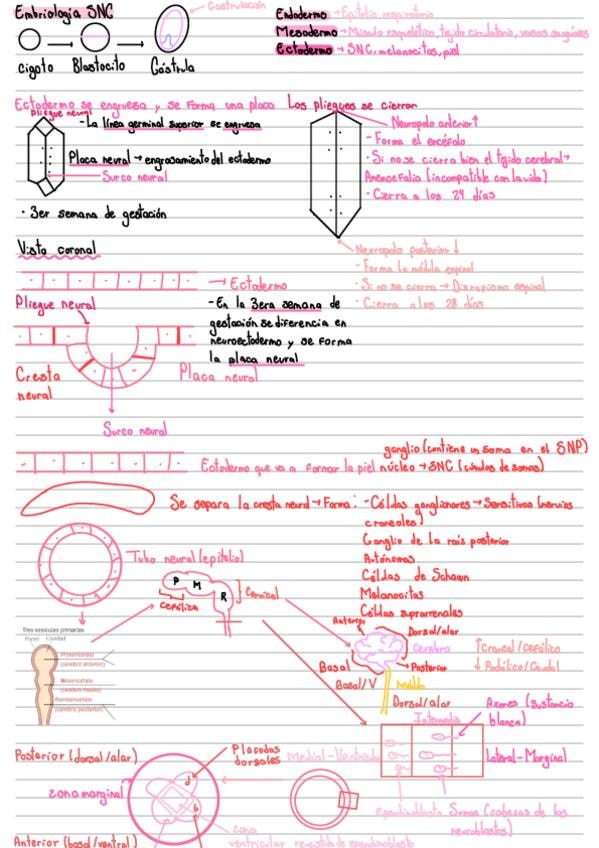 Embriología SNC
Gastrulación
cigoto Blastocito Gástrula
Endodermo → Epitelio respiratorio
Mesodermo → Músculo esquelético, tejido circulatorio, vasos sanguíneos
Ectodermo → SNC, melanocitos, piel
Ectodermo se engruesa y se forma una placa
Pliegue neural
- La línea germinal superior se engruesa
Placa neural → engrosamiento del ectodermo
Surco neural
· 3er semana de gestación
Los pliegues se cierran
Neuroporo anterior ↑
- Forma el encéfalo
- Si no se cierra bien el tejido cerebral →
Anencefalia (incompatible con la vida)
- Cierra a los 24 días
Neuroporo posterior ↓
- Forma la médula espinal
- Si no se cierra → Disrafismo espinal
- Cierra a los 28 días
Vista coronal
→ Ectodermo
Pliegue neural
- En la 3era semana de
gestación se diferencia en
neuroectodermo y se forma
la placa neural
Cresta
neural
Placa neural
Surco neural
ganglio (contiene un soma en el SNP)
Ectodermo que va a formar la piel
núcleo → SNC (cúmulos de somas)
Se separa la cresta neural → Forma:
- Células ganglionares → Sensitivas (nervios
craneales)
Ganglio de la raíz posterior
Autónomas
Células de Schwan
Melanocitos
Células suprarrenales
Tubo neural (epitelio)
P M R
Cefálica
Cervical
Tres vesículas primarias
Pared Cavidad
Prosencéfalo
(cerebro anterior)
Mesencéfalo
(cerebro medio)
Rombencéfalo
(cerebro posterior)
Anterior
Dorsal/alar
Cerebro
Basal
→ Posterior
Basal/V
Médula
Dorsal/alar
↑ Craneal/Cefálico
↓ Podálico/Caudal
Axones (sustancia
blanca)
Intermedio
Medial-Ventricular
Lateral-Marginal
Ependimoblasto
Somas (cabezas de los
neuroblastos)
Posterior (dorsal/alar)
Placodas
dorsales
zona marginal
d
b
Anterior (basal/ventral)
zona
ventricular revestida de ependimoblasto